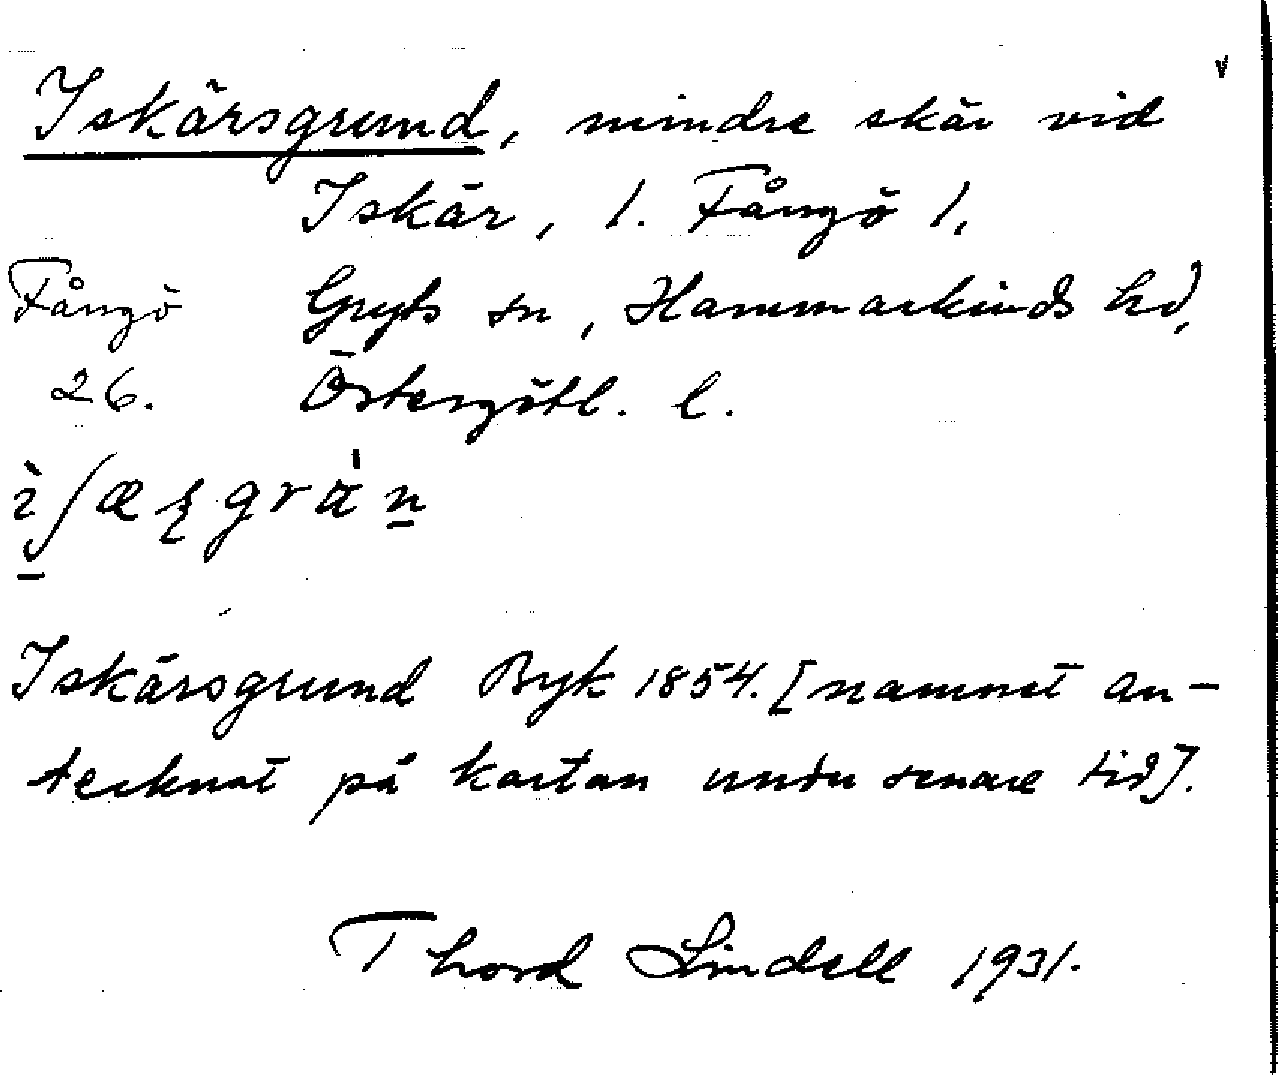 Iskärsgrund, mindre skär vid
Iskär, 1. Fångö 1,
Fångö Gryts sn, Hammarkinds hd,
26. Östergötl. l.
Iskärsgrund Byk 1854. [namnet an-
tecknat på kartan under senare tid].
Thord Lindell 1931.